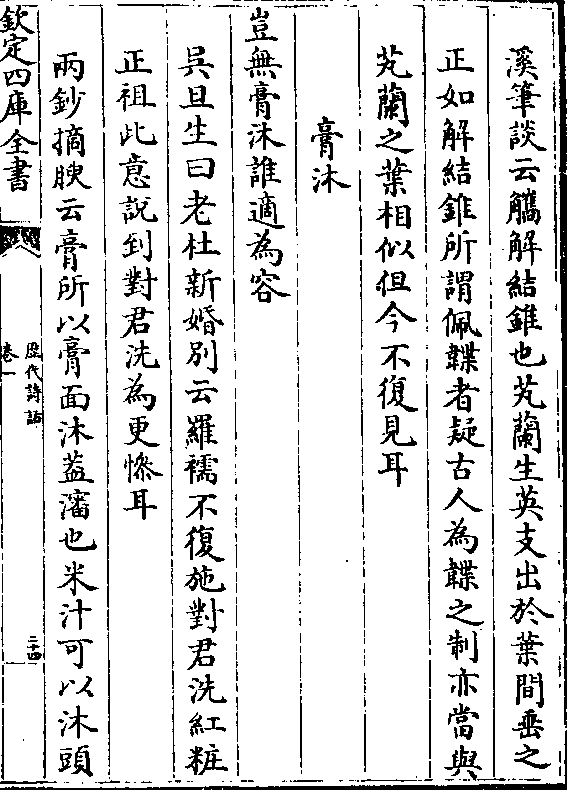 溪筆談云觿解結錐也芄蘭生英支出於葉間垂之
正如解結錐所謂佩韘者疑古人為韘之制亦當與
芄蘭之葉相似但今不復見耳
膏沐
豈無膏沐誰適為容
吳旦生曰老杜新婚別云羅襦不復施對君洗紅粧
正祖此意說到對君洗為更慘耳
兩鈔摘腴云膏所以膏面沐葢瀋也米汁可以沐頭
欽定四庫全書
歴代詩話
卷一
二十四